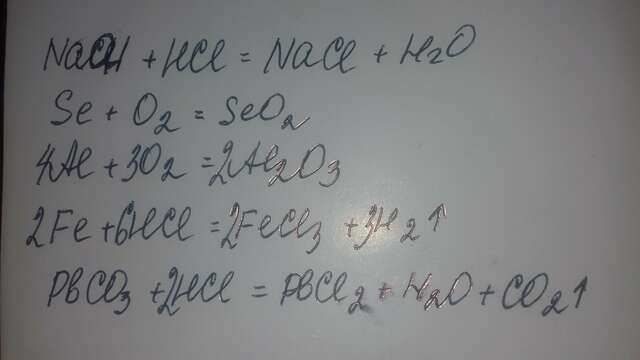 NaOH + HCl = NaCl + H₂O
Se + O₂ = SeO₂
4Al + 3O₂ = 2Al₂O₃
2Fe + 6HCl = 2FeCl₃ + 3H₂↑
PbCO₃ + 2HCl = PbCl₂ + H₂O + CO₂↑